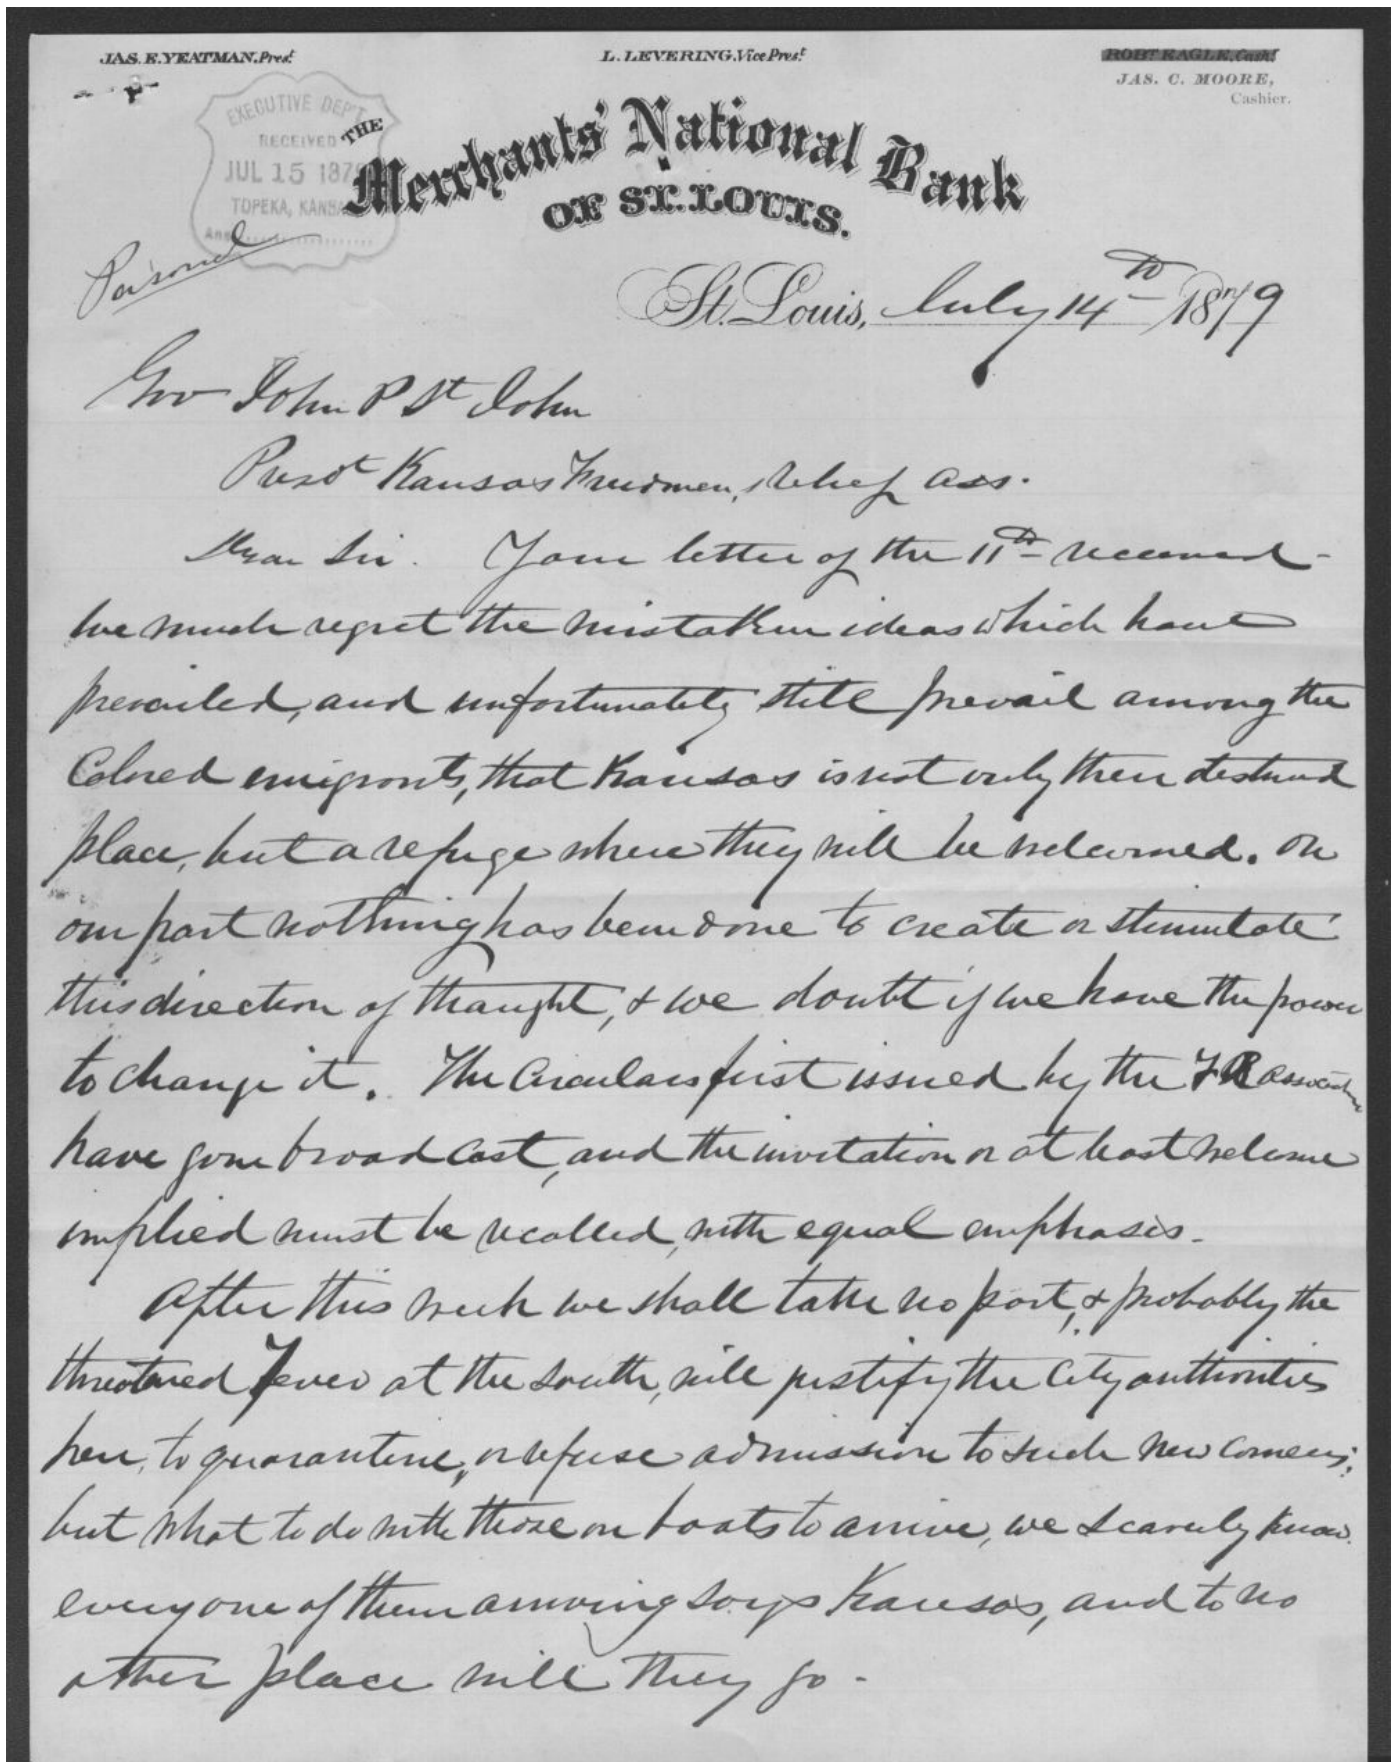 JAS. E. YEATMAN, Prest.
L. LEVERING, Vice Prest.
ROBT EAGLE, Cash!
JAS. C. MOORE,
Cashier.
EXECUTIVE DEP'T
RECEIVED
JUL 15 1879
TOPEKA, KANSAS
Ans
THE
Merchants' National Bank
OF ST. LOUIS.
Personal
St. Louis, July 14th 1879
Gov John P St John
Presdt Kansas Freedmen, relief ass.
Dear Sir. Your letter of the 11th received -
We much regret the mistaken ideas which have
prevailed, and unfortunately still prevail among the
Colored emigrants, that Kansas is not only their destined
place, but a refuge where they will be welcomed. On
our part nothing has been done to create or stimulate
this direction of thought, & we doubt if we have the power
to change it. The Circulars first issued by the F R association
have gone broad cast, and the invitation or at least welcome
implied must be recalled, with equal emphasis -
After this week we shall take no part, & probably the
threatened fever at the south, will justify the City authorities
here, to quarantine, or refuse admission to such new comers;
but what to do with those on boats to arrive, we scarcely know.
every one of them arriving says Kansas, and to no
other place will they go -